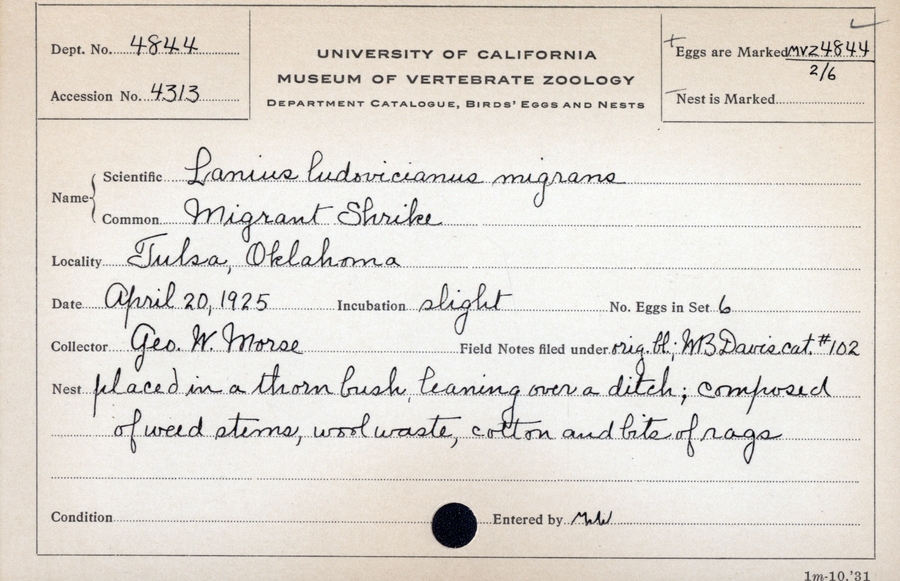 Dept. No. 4844
Accession No. 4313
UNIVERSITY OF CALIFORNIA
MUSEUM OF VERTEBRATE ZOOLOGY
DEPARTMENT CATALOGUE, BIRDS' EGGS AND NESTS
Eggs are Marked MVZ 4844
2/6
Nest is Marked
Name
Scientific Lanius ludovicianus migrans
Common Migrant Shrike
Locality Tulsa, Oklahoma
Date April 20, 1925 Incubation slight No. Eggs in Set 6
Collector Geo. W. Morse Field Notes filed under orig. bl; WB Davis cat. #102
Nest placed in a thorn bush, leaning over a ditch; composed
of weed stems, wool waste, cotton and bits of rags
Condition Entered by
1m-10,'31